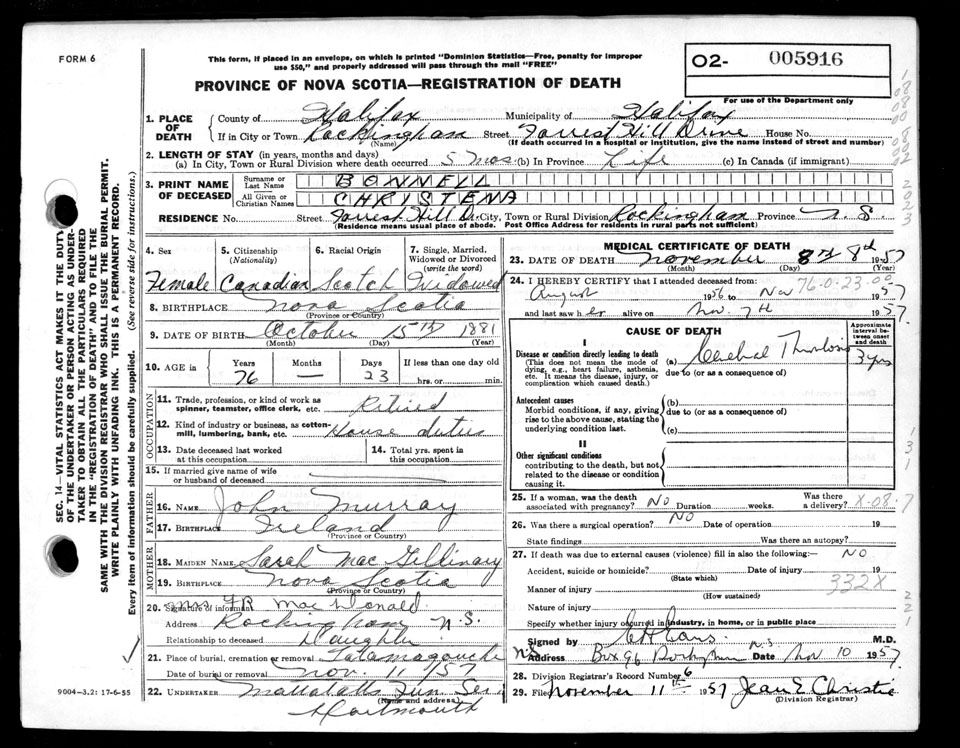 FORM 6
This form, if placed in an envelope, on which is printed "Dominion Statistics—Free, penalty for improper
use $50," and properly addressed will pass through the mail "FREE"
PROVINCE OF NOVA SCOTIA—REGISTRATION OF DEATH
02- 005916
For use of the Department only
1. PLACE OF DEATH
County of Halifax Municipality of Halifax
If in City or Town Rockingham Street Forrest Hill Drive House No.
(Name) (If death occurred in a hospital or institution, give the name instead of street and number)
2. LENGTH OF STAY (in years, months and days)
(a) In City, Town or Rural Division where death occurred 5 mos. (b) In Province Life (c) In Canada (if immigrant)
3. PRINT NAME OF DECEASED
Surname or Last Name BONNELL
All Given or Christian Names CHRISTENA
RESIDENCE No. Street Forrest Hill Dr. City, Town or Rural Division Rockingham Province N.S.
(Residence means usual place of abode. Post Office Address for residents in rural parts not sufficient)
4. Sex 5. Citizenship (Nationality) 6. Racial Origin 7. Single, Married, Widowed or Divorced (write the word)
Female Canadian Scotch Widowed
8. BIRTHPLACE Nova Scotia
(Province or Country)
9. DATE OF BIRTH October 15th 1881
(Month) (Day) (Year)
10. AGE in Years Months Days If less than one day old
76 — 23 hrs. or min.
OCCUPATION
11. Trade, profession, or kind of work as spinner, teamster, office clerk, etc. Retired
12. Kind of industry or business, as cotton-mill, lumbering, bank, etc. House duties
13. Date deceased last worked at this occupation 14. Total yrs. spent in this occupation
15. If married give name of wife or husband of deceased
FATHER
16. NAME John Murray
17. BIRTHPLACE Ireland
(Province or Country)
MOTHER
18. MAIDEN NAME Sarah Mac
19. BIRTHPLACE Nova Scotia
(Province or Country)
20. Signature of informant Mrs FR MacDonald
Address Rockingham N.S.
Relationship to deceased Daughter
21. Place of burial, cremation or removal Tatamagouche
Date of burial or removal Nov. 11/57
22. UNDERTAKER Mattatalls Fun Ser
(Name and address)
Dartmouth
9004—3.2: 17-6-55
SEC. 14—VITAL STATISTICS ACT MAKES IT THE DUTY
OF THE UNDERTAKER OR PERSON ACTING AS UNDER-
TAKER TO OBTAIN ALL THE PARTICULARS REQUIRED
IN THE "REGISTRATION OF DEATH" AND TO FILE THE
SAME WITH THE DIVISION REGISTRAR WHO SHALL ISSUE THE BURIAL PERMIT.
WRITE PLAINLY WITH UNFADING INK. THIS IS A PERMANENT RECORD.
Every item of information should be carefully supplied. (See reverse side for instructions.)
MEDICAL CERTIFICATE OF DEATH
23. DATE OF DEATH November 8th 8th 1957
(Month) (Day) (Year)
24. I HEREBY CERTIFY that I attended deceased from:
August 1956 to Nov 76-0-23-00 1957
and last saw her alive on Nov. 7th 1957.
CAUSE OF DEATH
Approximate interval between onset and death
I
Disease or condition directly leading to death
(This does not mean the mode of dying, e.g., heart failure, asthenia, etc. It means the disease, injury, or complication which caused death.)
(a) Cerebral Thrombosis 3 yrs
due to (or as a consequence of)
Antecedent causes
Morbid conditions, if any, giving rise to the above cause, stating the underlying condition last.
(b)
due to (or as a consequence of)
(c)
II
Other significant conditions
contributing to the death, but not related to the disease or condition causing it.
25. If a woman, was the death associated with pregnancy? NO Duration weeks. Was there a delivery? X-08-7
26. Was there a surgical operation? NO Date of operation 19
State findings Was there an autopsy?
27. If death was due to external causes (violence) fill in also the following:— NO
Accident, suicide or homicide? Date of injury 19
(State which)
Manner of injury 332X
(How sustained)
Nature of injury
Specify whether injury occurred in industry, in home, or in public place
Signed by M.D.
Address Box 96 Rockingham N.S. Date Nov 10 1957
28. Division Registrar's Record Number 6
29. Filed November 11th 1957 Jean E Christie
(Division Registrar)